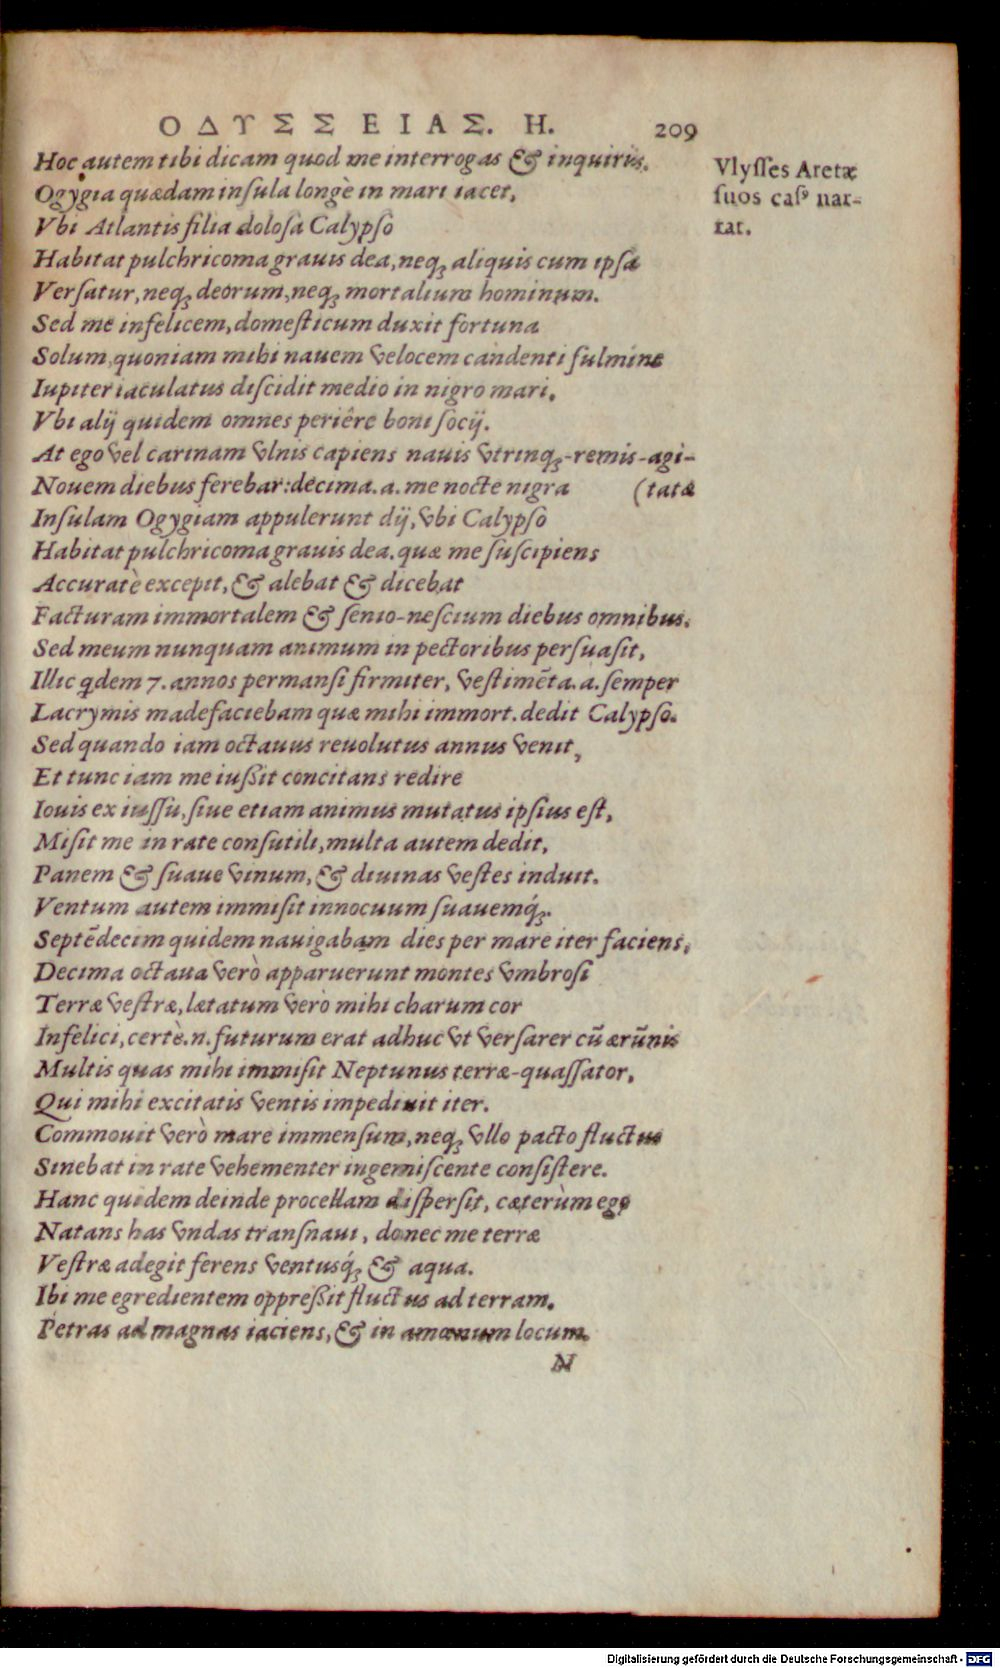 ΟΔΥΣΣΕΙΑΣ. Η. 209
Hoc autem tibi dicam quod me interrogas & inquiris.
Ogygia quædam insula longè in mari iacet,
Vbi Atlantis filia dolosa Calypso
Habitat pulchricoma grauis dea, neq; aliquis cum ipsa
Versatur, neq; deorum, neq; mortalium hominum.
Sed me infelicem, domesticum duxit fortuna
Solum, quoniam mihi nauem velocem candenti fulmine
Iupiter iaculatus discidit medio in nigro mari.
Vbi alij quidem omnes periêre boni socij.
At ego vel carinam vlnis capiens nauis vtrinq;-remis-agi-
Nouem diebus ferebar: decima.a. me nocte nigra (tatæ
Insulam Ogygiam appulerunt dij, vbi Calypso
Habitat pulchricoma grauis dea. quæ me suscipiens
Accuratè excepit, & alebat & dicebat
Facturam immortalem & senio-nescium diebus omnibus.
Sed meum nunquam animum in pectoribus persuasit,
Illic qdem 7. annos permansi firmiter, vestimēta.a. semper
Lacrymis madefaciebam quæ mihi immort. dedit Calypso.
Sed quando iam octauus reuolutus annus venit,
Et tunc iam me iußit concitans redire
Iouis ex iussu, siue etiam animus mutatus ipsius est,
Misit me in rate consutili, multa autem dedit,
Panem & suaue vinum, & diuinas vestes induit.
Ventum autem immisit innocuum suauemq́;.
Septēdecim quidem nauigabam dies per mare iter faciens,
Decima octaua verò apparuerunt montes vmbrosi
Terræ vestræ, lætatum verò mihi charum cor
Infelici, certè.n. futurum erat adhuc vt versarer cū ærūnis
Multis quas mihi immisit Neptunus terræ-quassator,
Qui mihi excitatis ventis impediuit iter.
Commouit verò mare immensum, neq; vllo pacto fluctus
Sinebat in rate vehementer ingemiscente consistere.
Hanc quidem deinde procellam dispersit, cæterùm ego
Natans has vndas transnaui, donec me terræ
Vestræ adegit ferens ventusq́; & aqua.
Ibi me egredientem oppreßit fluctus ad terram.
Petras ad magnas iaciens, & in amœnum locum.
N
Vlysses Aretæ
suos casꝰ nar-
rat.
Digitalisierung gefördert durch die Deutsche Forschungsgemeinschaft - DFG